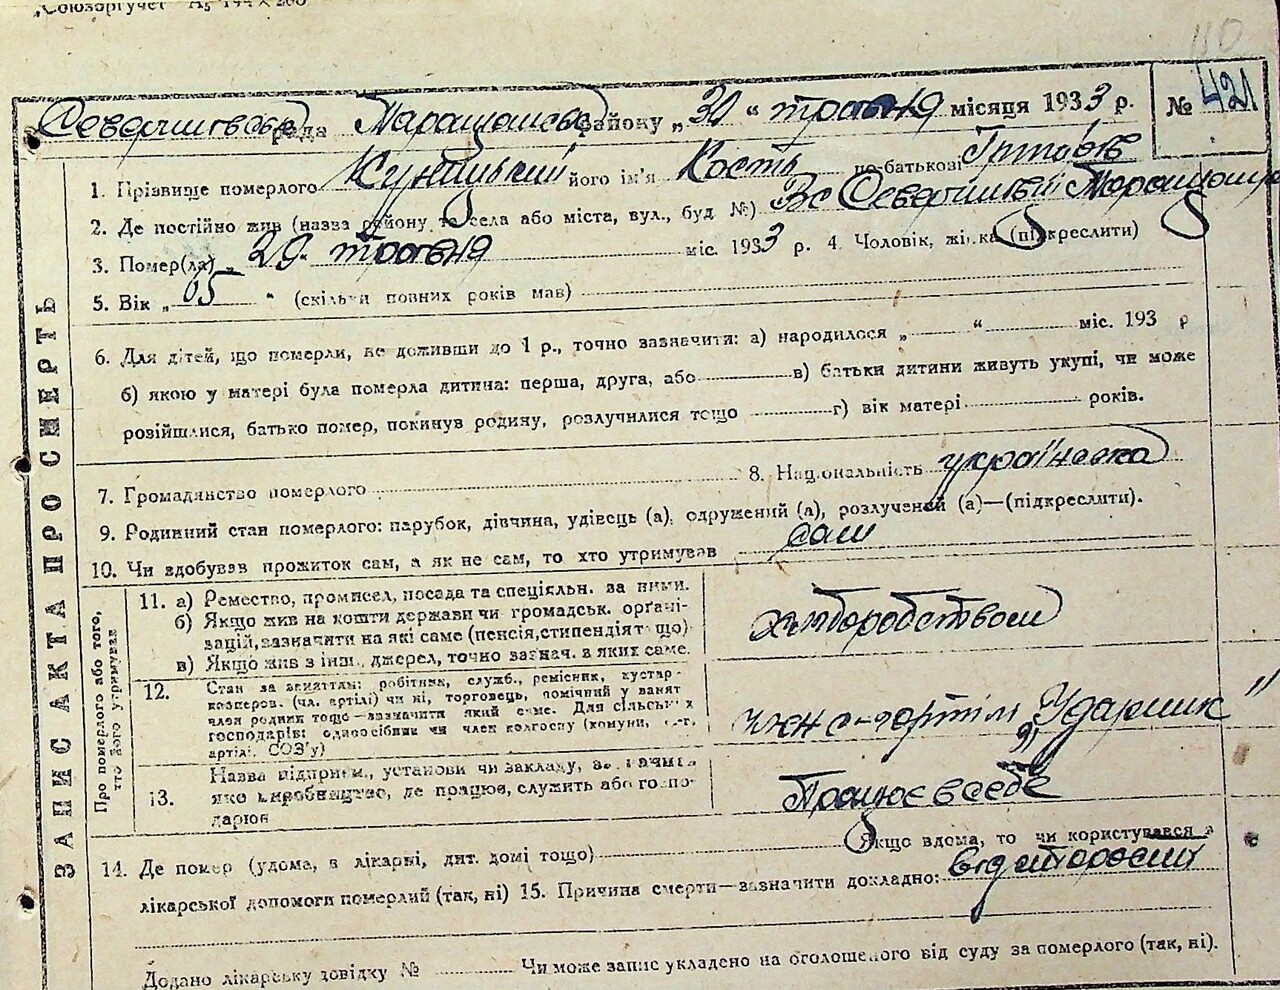 „Союзоргучет“
110
рада району „30“ травня місяця 1933 р. № 421
1. Прізвище померлого його ім'я Кость по-батькові
2. Де постійно жив (назва району та села або міста, вул., буд №)
3. Помер(ла) „29. травня міс. 1933 р. 4. Чоловік, жінка (підкреслити)
5. Вік „65“ (скільки повних років мав)
6. Для дітей, що померли, не доживши до 1 р., точно зазначити: а) народилося „ “ міс. 193 р
б) якою у матері була померла дитина: перша, друга, або в) батьки дитини живуть укупі, чи може
розійшлися, батько помер, покинув родину, розлучилися тощо г) вік матері років.
7. Громадянство померлого 8. Національність українська
9. Родинний стан померлого: парубок, дівчина, удівець (а), одружений (а), розлучений (а)—(підкреслити).
10. Чи здобував прожиток сам, а як не сам, то хто утримував сам
ЗАПИС АКТА ПРО СМЕРТЬ
Про померлого або того, хто його утримував
11. а) Ремество, промисел, посада та спеціяльн. за ними.
б) Якщо жив на кошти держави чи громадськ. орґані-
зацій, зазначити на які саме (пенсія, стипендія тощо)
в) Якщо жив з інш. джерел, точно зазнач. в яких саме.
хліборобством
12. Стан за заняттям: робітник, служб., ремісник, кустар-
коопер. (чл. артілі) чи ні, торговець, помічний у занят
член родини тощо—зазначити який саме. Для сільськ х
господарів: одноосібник чи член колгоспу (комуни, с.-г.
артілі, СОЗ'у)
член с-г артіли „Ударник“
13. Назва підприєм., установи чи закладу, зазначить
яке виробництво, де працює, служить або госпо-
дарює
Працює в себе
14. Де помер (удома, в лікарні, дит. домі тощо) Якщо вдома, то чи користувався з
лікарської допомоги померлий (так, ні) 15. Причина смерти—зазначити докладно: від старости
Додано лікарську довідку № Чи може запис укладено на оголошеного від суду за померлого (так, ні).